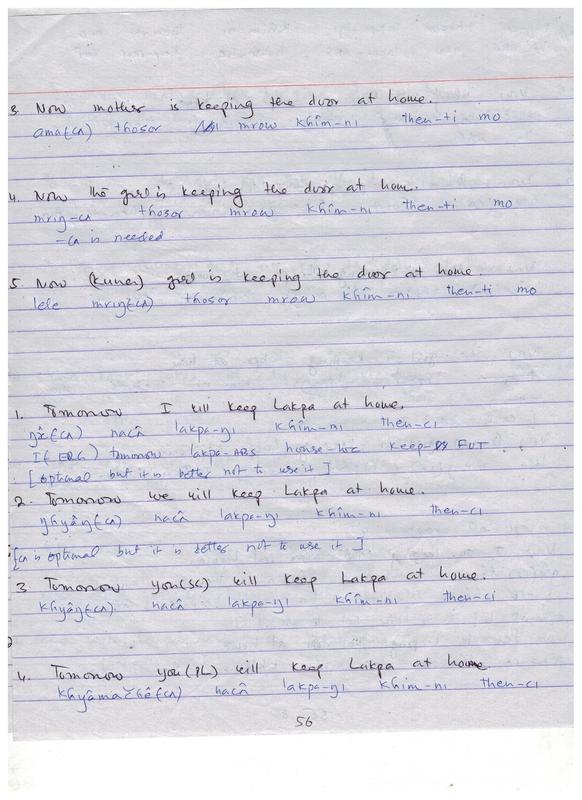 3. Now mother is keeping the door at home.
ama(-cʌ) thosor mrow khîm-nı then-ti mo
4. Now the girl is keeping the door at home.
mrıŋ-cʌ thosor mrow khîm-nı then-ti mo
-cʌ is needed
5. Now (kuner) girl is keeping the door at home.
mrıŋ(-cʌ) thosor mrow khîm-nı then-ti mo
1. Tomorrow I will keep Lakpa at home.
(-cʌ) nacâ lakpa-ŋı khîm-nı then-cı
I( ERG) tomorrow lakpa-ABS house-loc keep- FUT
[optional but it is better not to use it]
2. Tomorrow we will keep Lakpa at home.
ŋhyâŋ(-cʌ) nacâ lakpa-ŋı khîm-nı then-cı
[cʌ is optional but it is better not to use it].
3. Tomorrow you(SG) will keep Lakpa at home.
khyâŋ(-cʌ) nacâ lakpa-ŋı khîm-nı then-ci
4. Tomorrow you(PL) will keep Lakpa at home.
khyâmačhê(-cʌ) nacâ lakpa-ŋı khim-nı then-cı
56